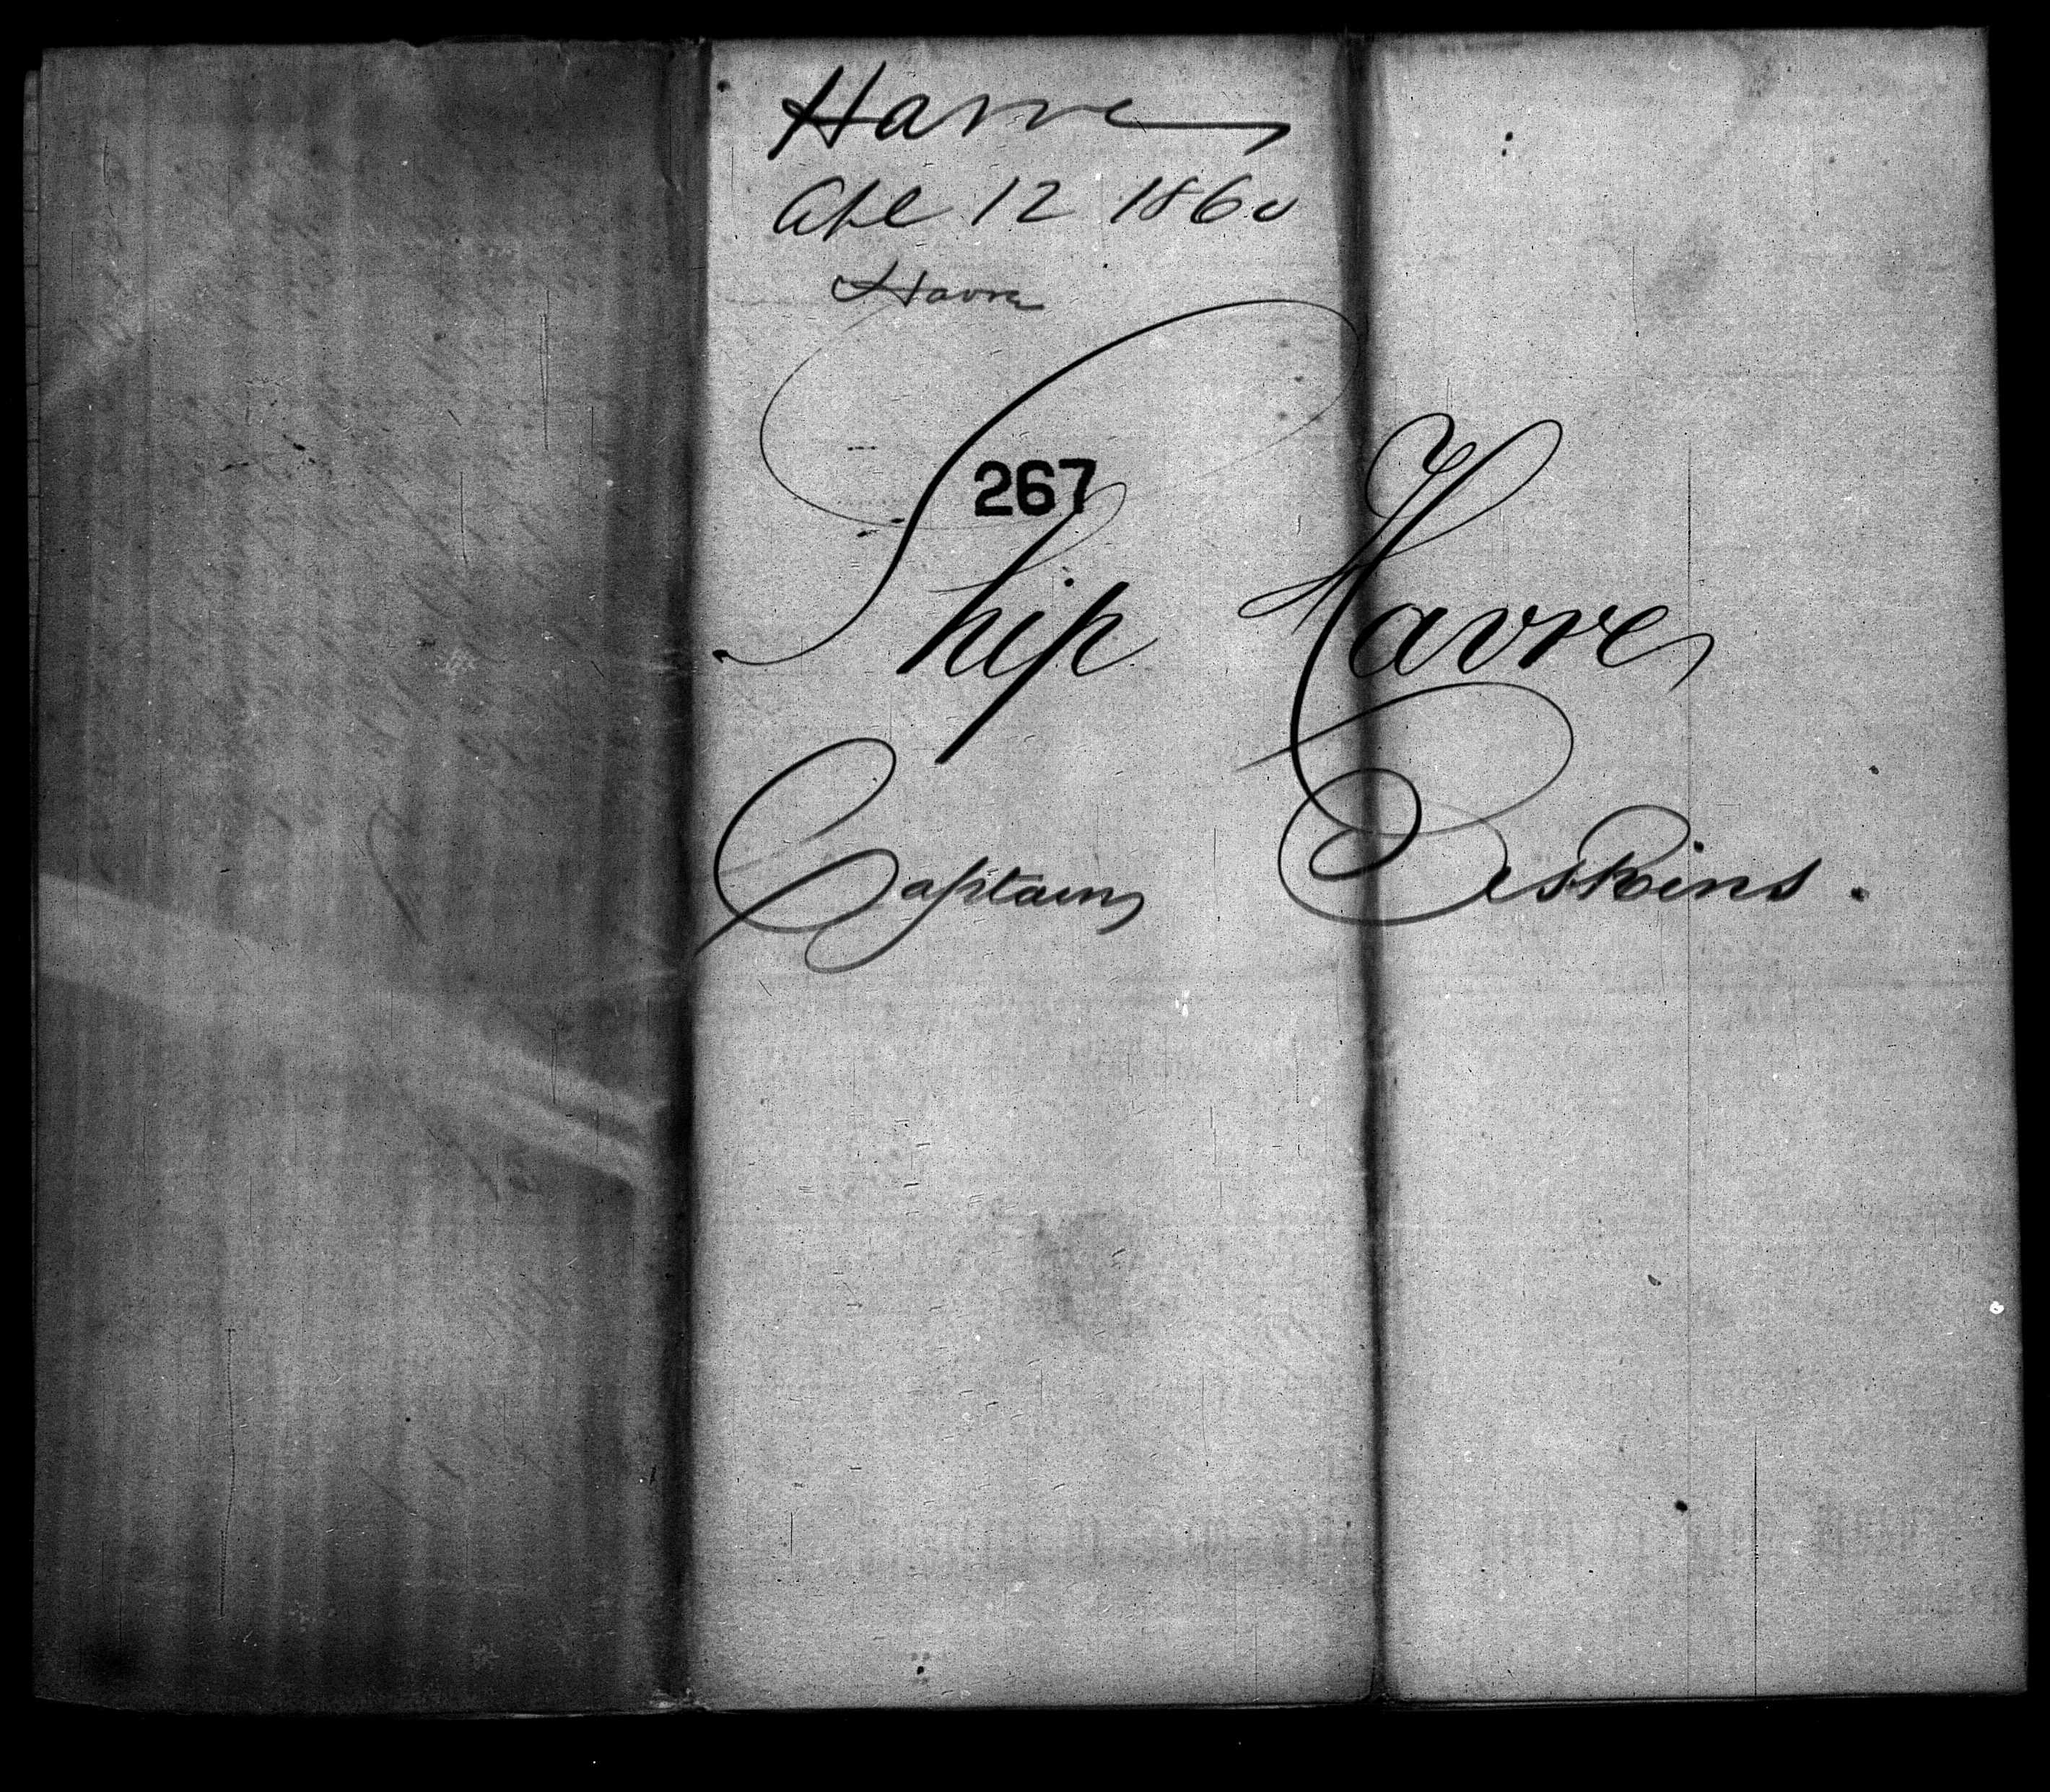 Havre
Apl 12 1860
Havre
267
Ship Havre
Captain Deskins.